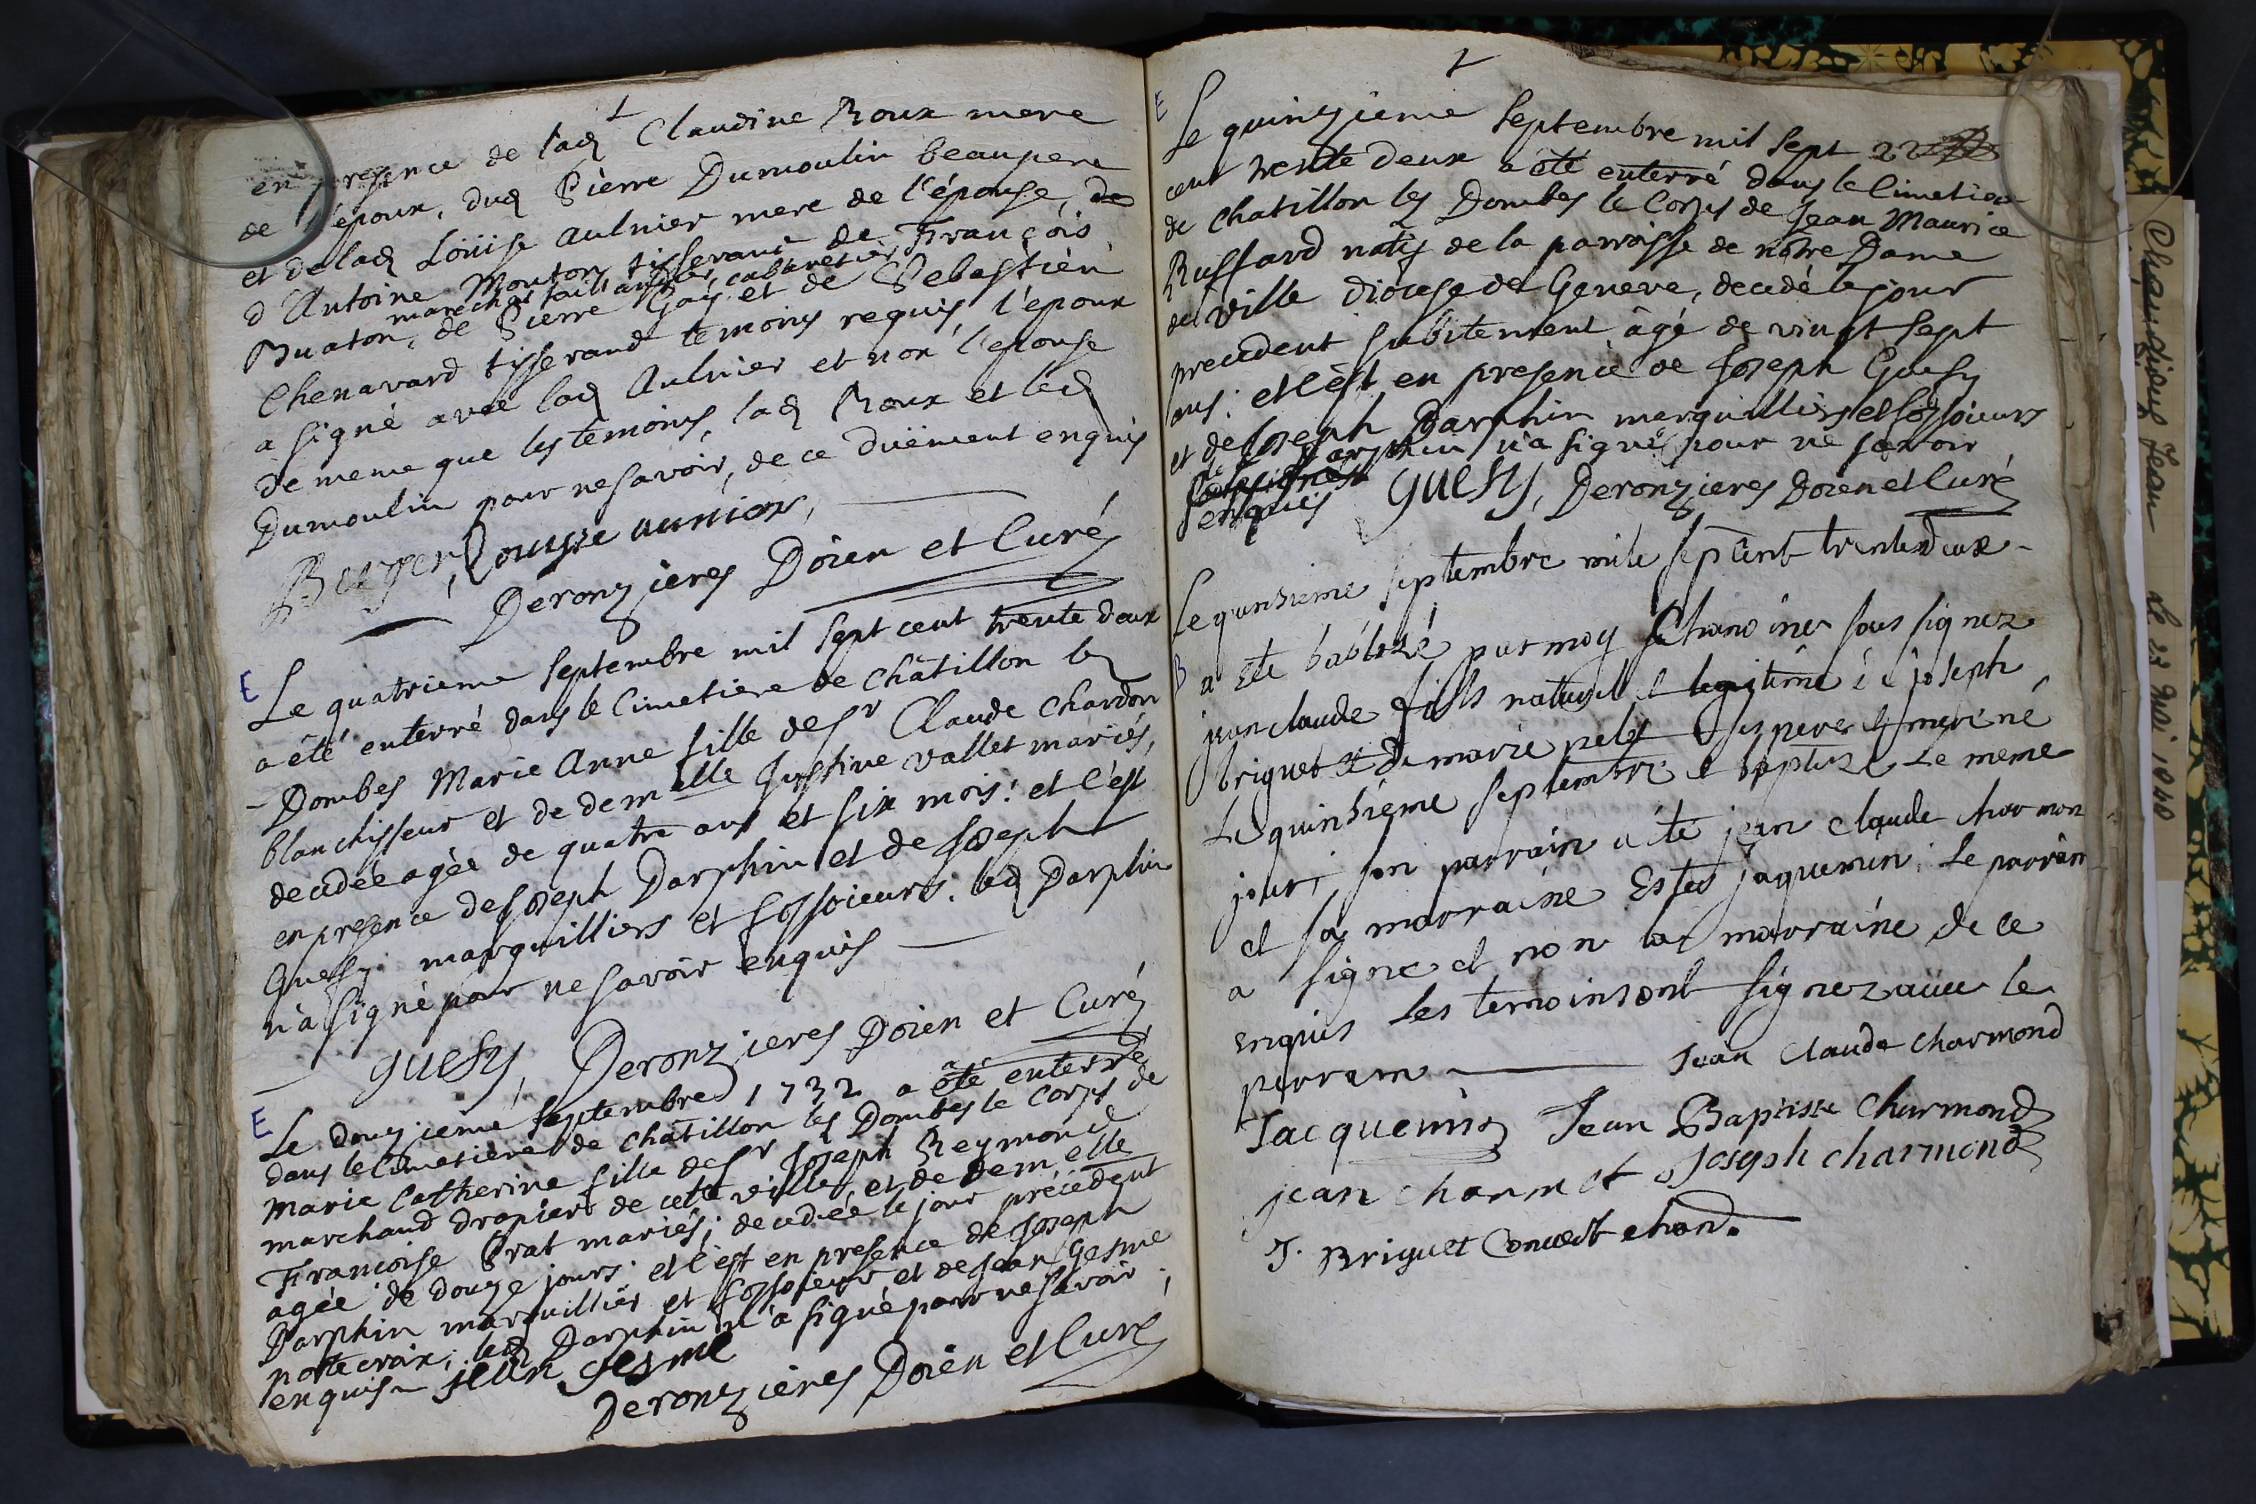 en presence de lad Claudine Roux mere
de l'époux, dud Pierre Dumoulin beaupere
et de lad Loüise Aulnier mere de l'épouse, de
d'Antoine Mouton tisserant de François
marechal taillandier, cabaretier
Buaton, de Pierre Gay et de Sebastien
Chenavard tisserand temoins requis, l'époux
a signé avec lad Aulnier et non l'epouse
de meme que les temoins, lad Roux et led
Dumoulin pour ne savoir, de ce duëment enquis
Berger, Louyse aunier,
Deronzieres Doien et Curé
E Le quatrieme Septembre mil sept cent trente deux
a été enterré dans le Cimetiere de Châtillon les
Dombes Marie Anne fille de Sr Claude Chardon
blanchisseur et de demelle Justine Vallet mariés,
decedée agée de quatre ans et six mois: et c'est
en presence de Joseph Darphin et de Joseph
Guesy marguilliers et fossoieurs. led Darphin
n'a signé pour ne savoir enquis
guesy, Deronzieres Doien et Curé
E Le douzieme Septembre 1732 a été enterré
dans le Cimetiere de Châtillon les Dombes le Corps de
Marie Catherine fille de Sr Joseph Reymond
marchand drapier de cette ville, et de demelle
Françoise Prat mariés; decedée le jour précédent
agée de douze jours: et c'est en presence de Joseph
Darphin marguillier et fossoieur et de Jean Gesme
porte croix; led Darphin n'a signé pour ne savoir;
enquis jean gesme
Deronzieres Doien et Curé
E Le quinzieme Septembre mil sept
cent trente deux a été enterré dans le Cimetiere
de Chatillon les Dombes le Corps de Jean Maurice
Ruffard natif de la parroisse de nôtre Dame
de Ville diocese de Geneve, decedé le jour
precedent subitement âgé de vingt sept
ans: et c'est en presence de Joseph Guesy
et de Joseph Darphin marguilliers et fossoieurs
Darphin n'a signé pour ne savoir
enquis guesy, Deronzieres Doien et Curé
Le quinsieme septembre mile sept cent trente deux
B a été babtizé par moy Chanoine sous signez
jean claude fils naturel et legitime à joseph
briguet et de marie pelet ses pere et mere né
Le quinsième septembre et baptizé Le meme
jour, son parrain a été jean claude charmon
et sa marraine Ester jaquemin; Le parrain
a signe et non la marraine de ce
enquis Les temoins ont signez avec le
parrain Jean Claude Charmond
Jacquemin Jean Baptiste Charmond
jean charmet Joseph charmond
J. Briguet Convert chan.
Chaudieur Jean Le 23 Mai 1840